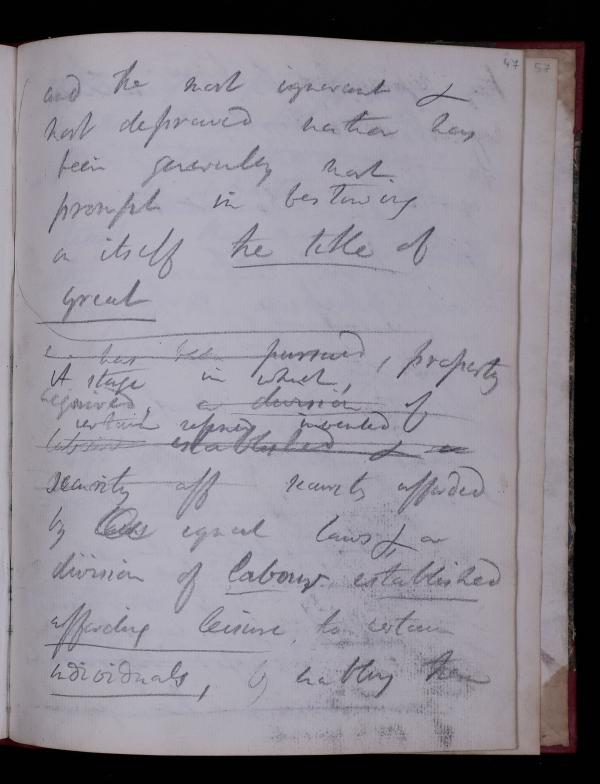 47 57
and the most ignorant &
most depraved nation has
been generally most
prompt in bestowing
on itself the title of
great
has been pursued, property
A stage in which,
acquired, a division of
certain refined invented
labour established &
security aff security afforded
by equal laws, & a
division of labour established
affording leisure, to certain
individuals, by enabling them